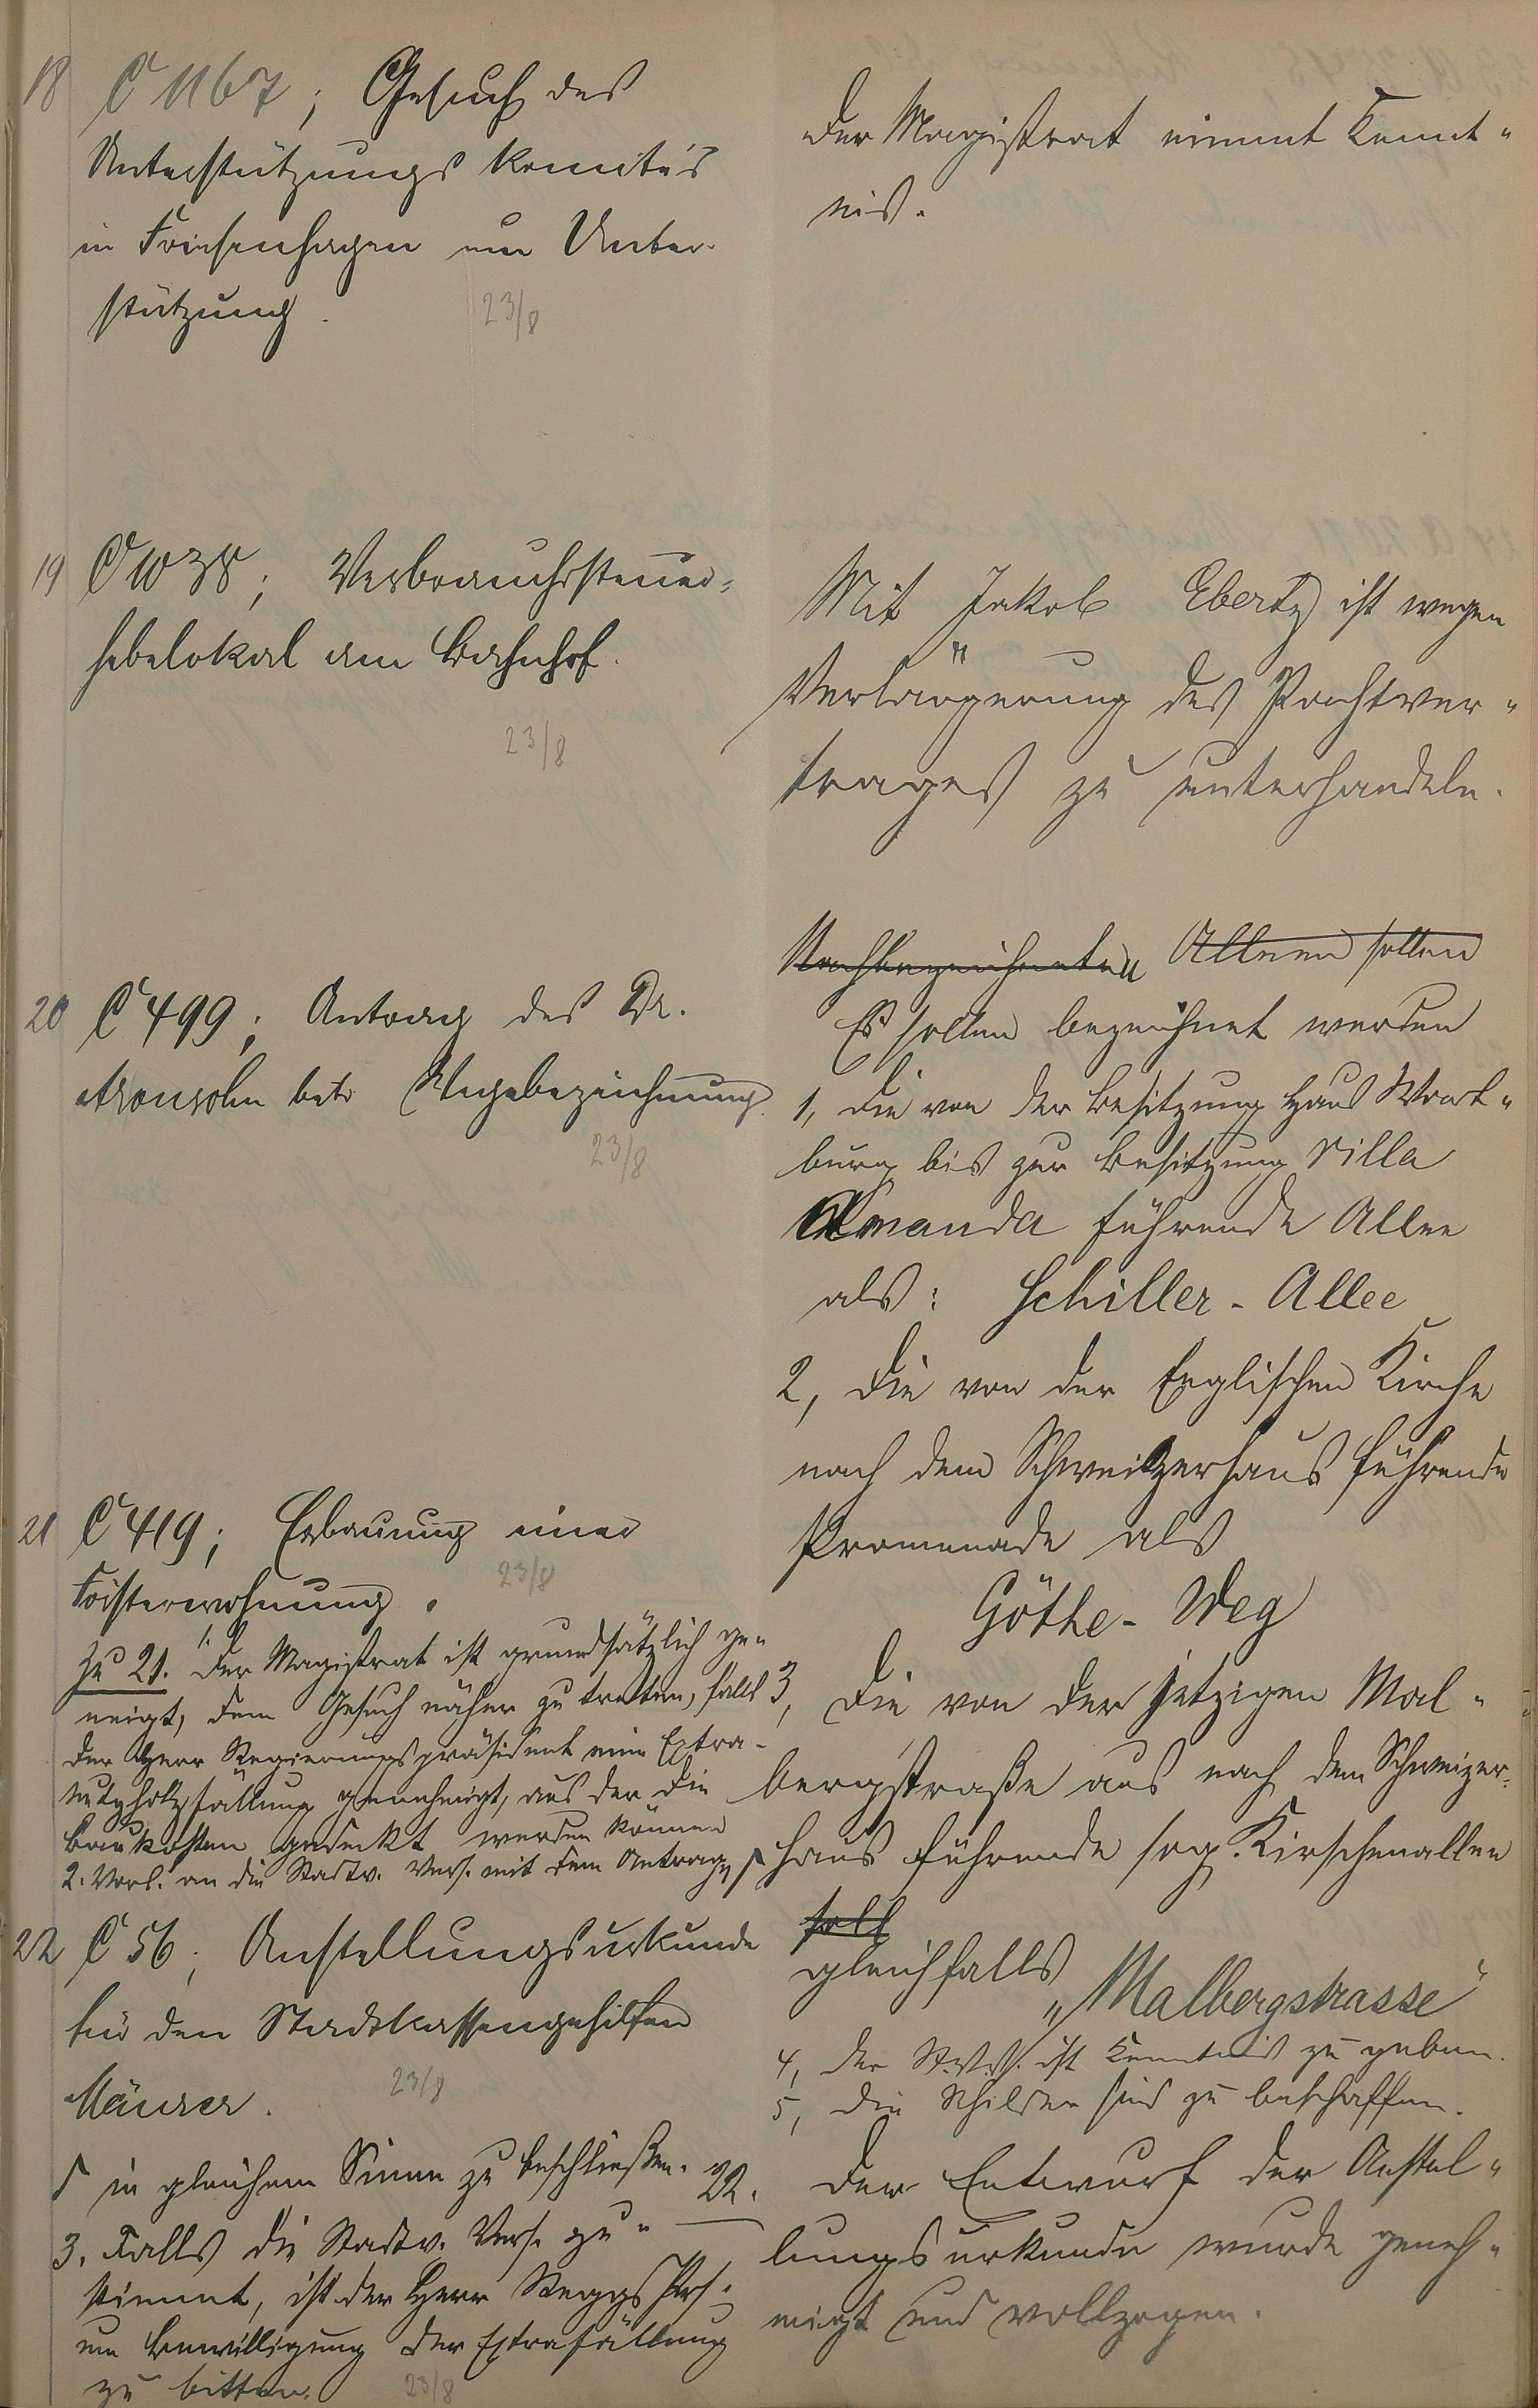 18 C 1167; Gesuch des
Unterstützungs Komité's
in Friesenhagen um Unter-
stützung.
23/8
Der Magistrat nimmt Kennt-
nis.
19 C 1038; Verbrauchssteuer-
hebelokal am Bahnhof.
23/8
Mit Jakob Ebertz ist wegen
Verlängerung des Pachtver-
trages zu unterhandeln.
20 C 499; Antrag des Dr.
Aronsohn betr Wegebezeichnung.
23/8
Nachbezeichneten Alleen sollen
Es sollen bezeichnet werden
1, die von der Besitzung Haus Wart-
burg bis zur Besitzung Villa
Amanda führende Allee
als: Schiller-Allee
2, die von der Englischen Kirche
nach dem Schweizerhaus führende
Promenade als
Göthe-Weg
3, die von der jetzigen Mal-
bergstraße aus nach dem Schweizer-
haus führende sog. Kirschenallee
soll
gleichfalls
"Malbergstrasse"
4, der St.V.V. ist Kenntnis zu geben.
5, die Schilder sind zu beschaffen.
21 C 419; Erbauung einer
Försterwohnung.
23/8
Zu 21. 1. Der Magistrat ist grundsätzlich ge-
neigt, dem Gesuch näher zu treten, falls
der Herr Regierungspräsident eine Extra-
nutzholzfällung genehmigt, aus der die
Baukosten gedeckt werden können
2. Vorl. an die Stadtv. Vers. mit dem Antrage,
22 C 56; Anstellungsurkunde
für den Stadtkassengehilfen
Mäurer.
23/8
in gleichem Sinne zu beschließen.
3. Falls die Stadtv. Vers. zu-
stimmt, ist der Herr Reggs Prs.
um Bewilligung der Extrafällung
zu bitten.
23/8
22. Der Entwurf der Anstel-
lungsurkunde wurde geneh-
migt und vollzogen.